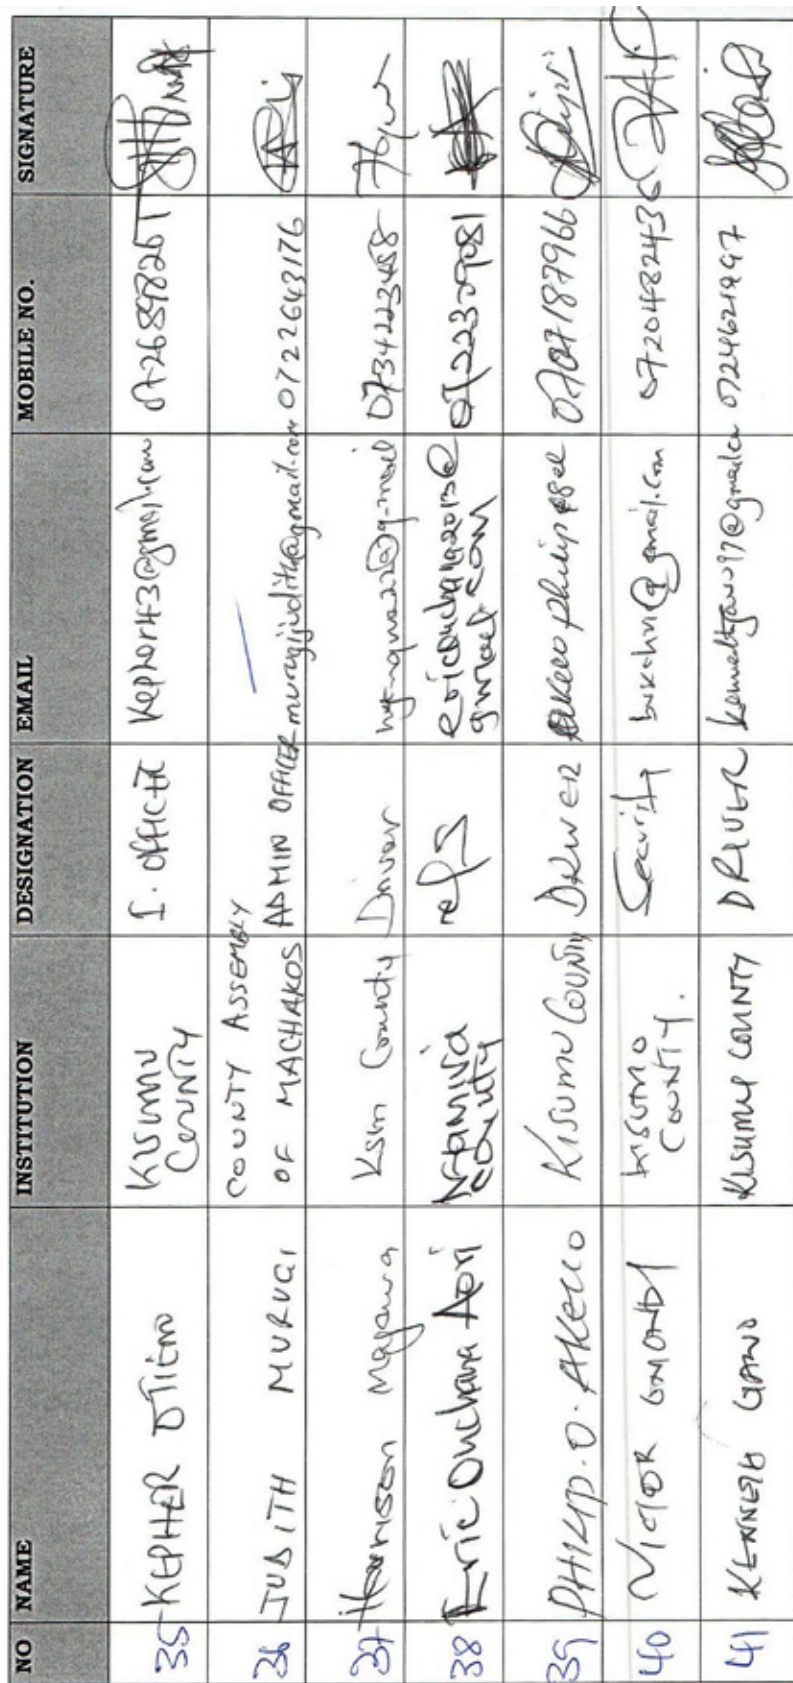 NO NAME INSTITUTION DESIGNATION EMAIL MOBILE NO. SIGNATURE
35 KEPHER OTIENO KISUMU COUNTY I. OFFICER 0726898261
36 JUDITH MURUGI COUNTY ASSEMBLY OF MACHAKOS ADMIN OFFICER murugijudith@gmail.com 0722643176
37 Harrison Magawa Ksm County Driver 0734223458
38 Eric Onchana Aori Nyamira County ericonchana2013@gmail.com
39 PHILIP. O. AKELLO KISUMU COUNTY DRIVER 0707187966
40 VICTOR OMONDI KISUMO COUNTY. Security @gmail.com 0720482436
41 KENNETH KISUMU COUNTY DRIVER 0724621997